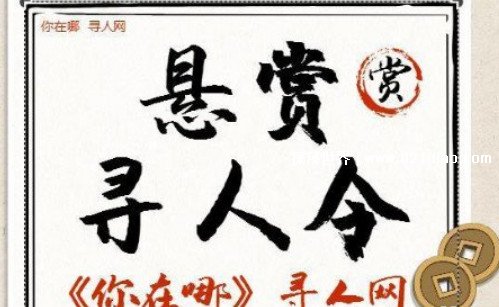 你在哪 寻人网
悬赏
赏
寻人令
《你在哪》寻人网